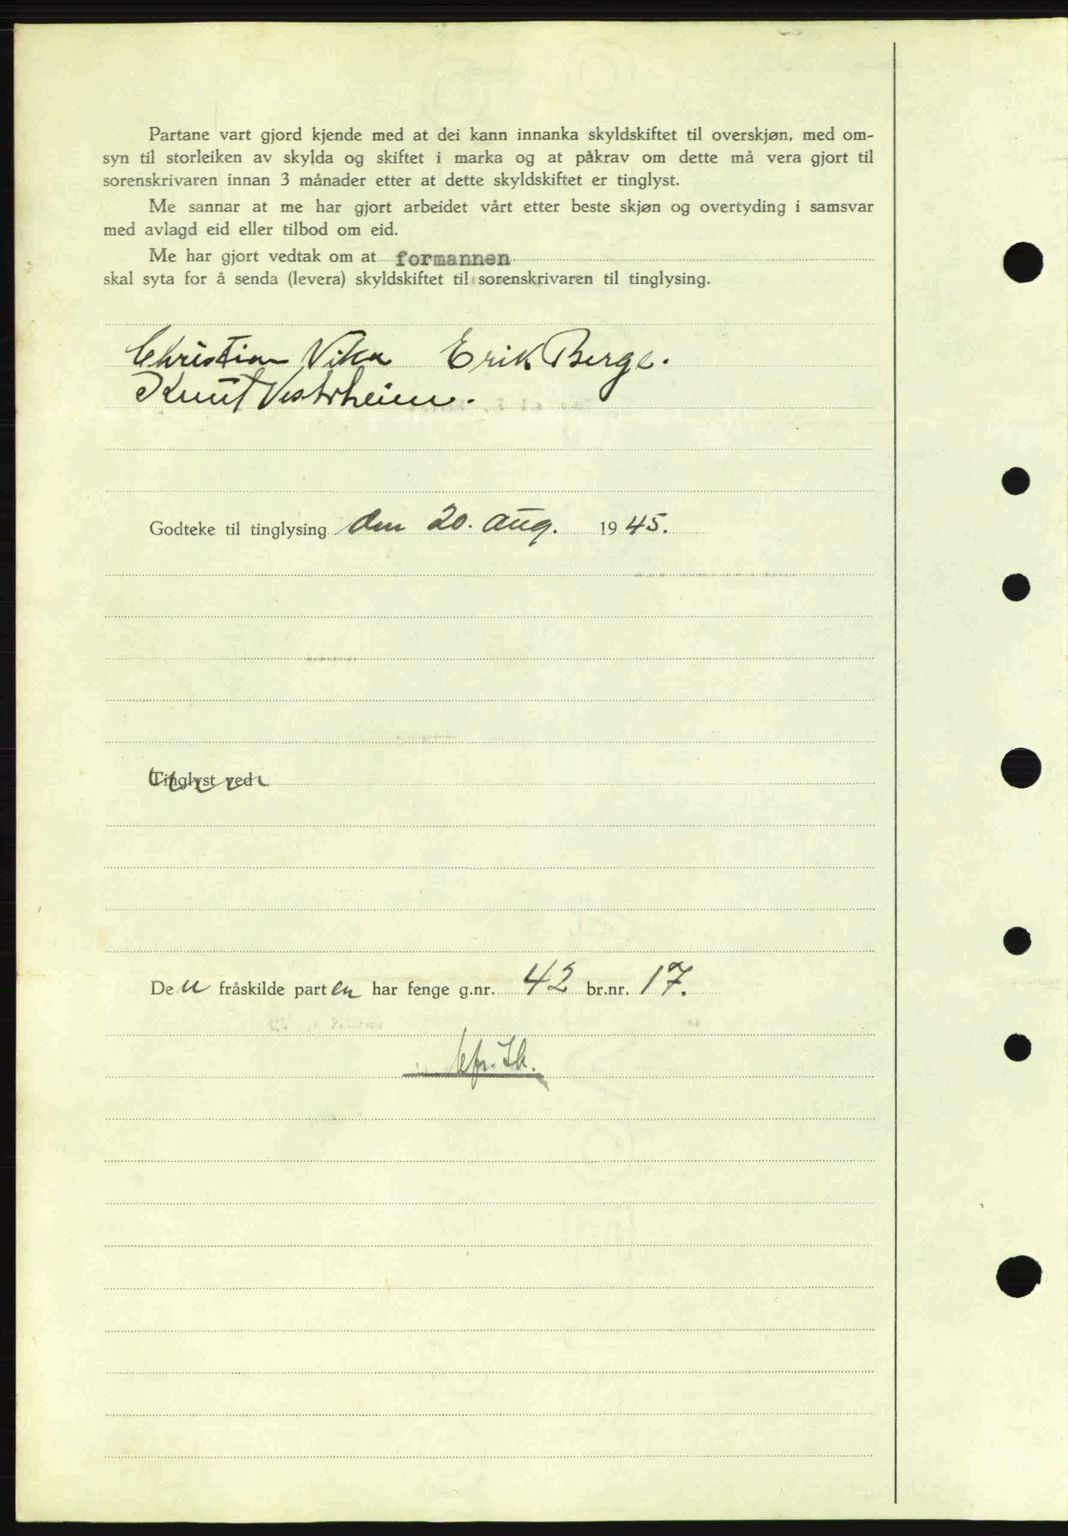 Partane vart gjord kjende med at dei kann innanka skyldskiftet til overskjøn, med om-
syn til storleiken av skylda og skiftet i marka og at påkrav om dette må vera gjort til
sorenskrivaren innan 3 månader etter at dette skyldskiftet er tinglyst.
Me sannar at me har gjort arbeidet vårt etter beste skjøn og overtyding i samsvar
med avlagd eid eller tilbod om eid.
Me har gjort vedtak om at formannen
skal syta for å senda (levera) skyldskiftet til sorenskrivaren til tinglysing.
Christian Vika Erik Berge.
Knut Vestrheim.
Godteke til tinglysing den 20. aug. 1945.
Tinglyst ved
Den fråskilde parten har fenge g.nr. 42 br.nr. 17.